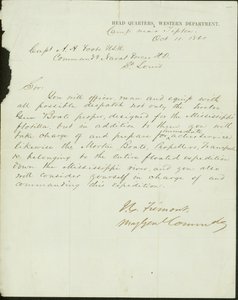 HEAD QUARTERS, WESTERN DEPARTMENT,
Camp near Tipton
Oct 11. 1861
Capt A. H. Foote U.S.N.
Command'g Naval Forces
St Louis
Sir
You will officer, man and equip with
all possible dispatch not only the
Gun Boats proper, designed for the Mississippi
flotilla, but in addition to them you will
take charge of and prepare for immediate service
likewise the Mortar Boats, Propellers, Transports
belonging to the entire floated expedition
down the Mississippi river and you also
will consider yourself in charge of and
commanding this expedition.
J. C. Fremont.
Maj Gen'l Commdg